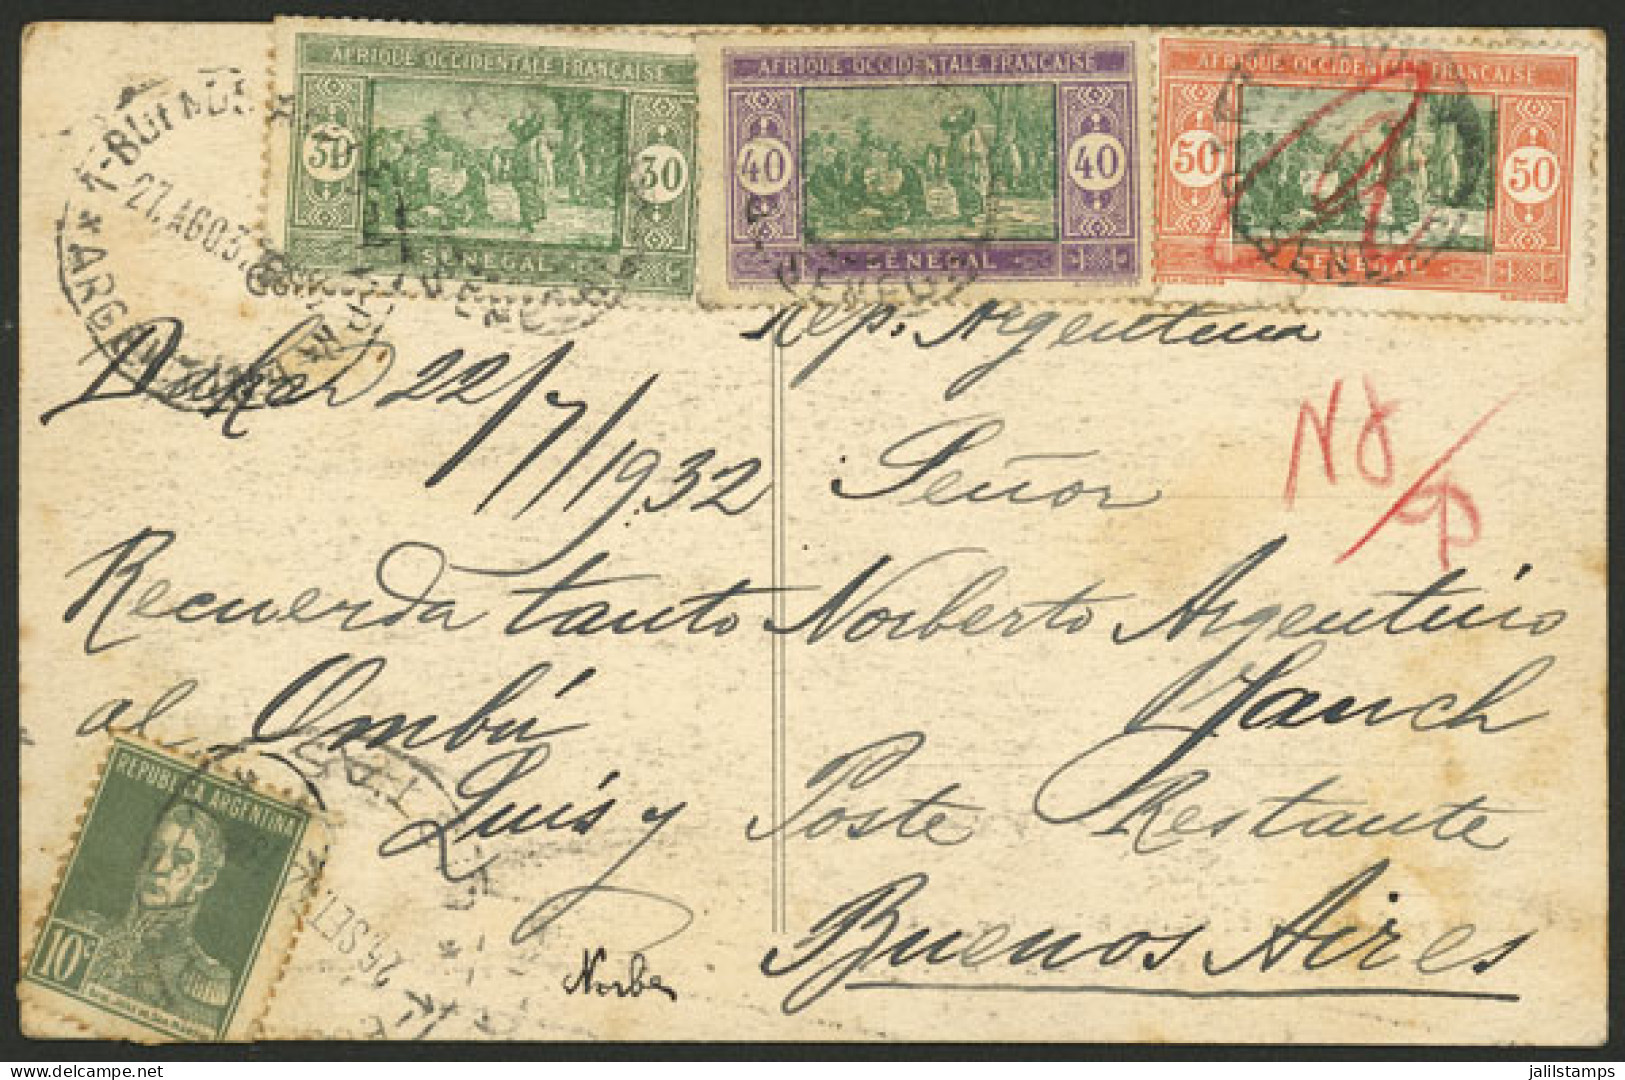 AFRIQUE OCCIDENTALE FRANÇAISE
30 30
SÉNÉGAL
AFRIQUE OCCIDENTALE FRANÇAISE
40 40
SÉNÉGAL
AFRIQUE OCCIDENTALE FRANÇAISE
50 50
SÉNÉGAL
27. AGO
Rep. Argentina
Dakar 22/7/1932
Recuerda tanto
al Ombú
Luís y
Norbe
Señor
Norberto Argentino
Poste Restante
Buenos Aires
REPUBLICA ARGENTINA
10c
26 SET
jalilstamps